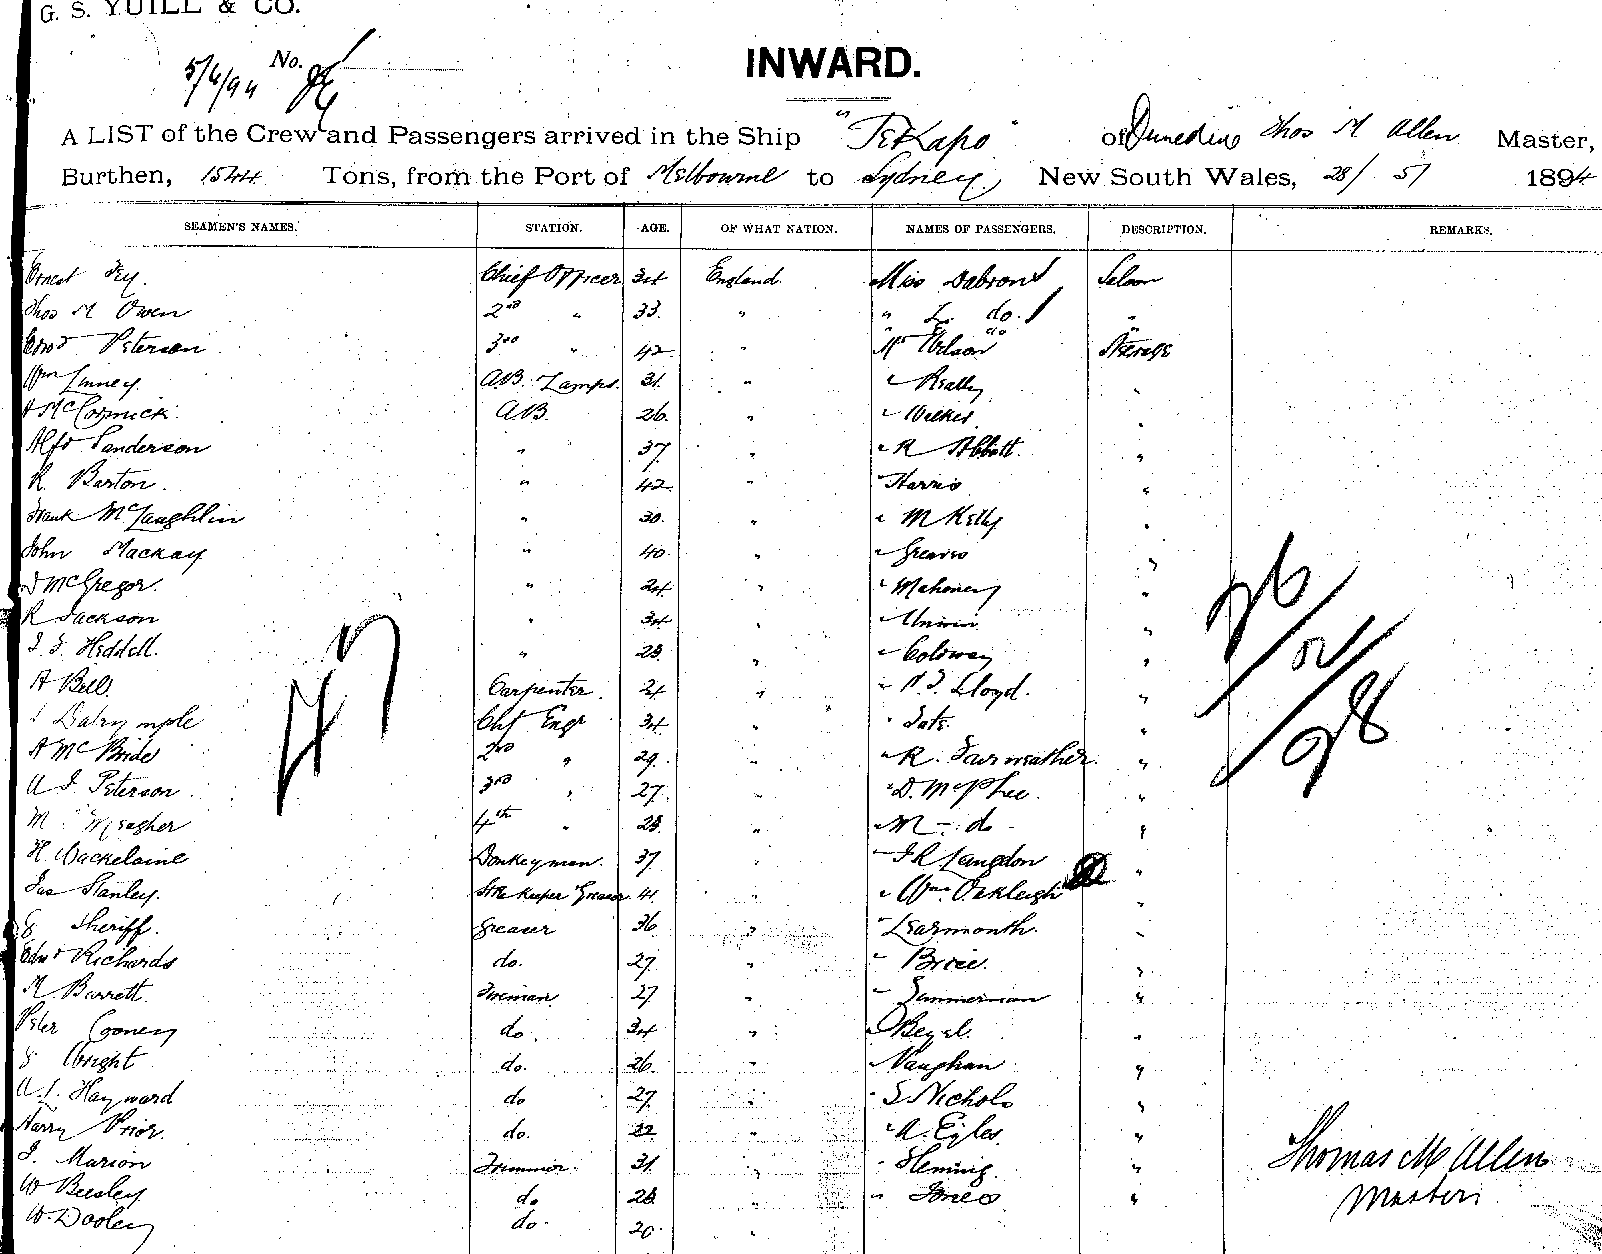 G. S. YUILL & CO.
No.
5/6/94
INWARD.
A LIST of the Crew and Passengers arrived in the Ship "TeKapo" of Dunedin Thos M Allen Master,
Burthen, 1544 Tons, from the Port of Melbourne to Sydney, New South Wales, 28/ 5/ 1894
SEAMEN'S NAMES. STATION. AGE. OF WHAT NATION. NAMES OF PASSENGERS. DESCRIPTION. REMARKS.
Ernest Fry. Chief Officer 34 England Miss Dabron Saloon
Thos M Owen 2nd " 33. " " L. do. "
Peterson 3rd " 42 " Mr Wilson Steerage
Wm Linney. AB. Lamps. 31. " " Really "
A McCormick. AB. 26. " " Wilkes "
Alfd Sanderson " 37 " " R Abbott. "
R. Barton. " 42. " " Harris "
Frank McLaughlin " 30. " " M Kelly "
John Mackay " 40. " " Greaves "
D McGregor. " 24 " " Mahoney "
R Jackson " 34 " " Unwin "
J. S. Heddell. " 28. " " Coloway "
A Bell. Carpenter. 24 " " N. J. Lloyd. "
Dalrymple Chf Engr 34 " " Tate. "
A McBride 2nd " 29. " " R. Fairweather. "
A J. Peterson 3rd " 27. " " D. McPhee. "
M. Meagher 4th " 28. " " M - do - "
H. Wackelaine Donkeyman. 37 " " J R Langdon "
Jas Stanley. Stkeeper Greaser. 41. " " Wm. Oakleigh "
E Sheriff. Greaser 36 " " Learmonth. "
Edwd Richards do. 27. " " Brice. "
M Barrett. Fireman 27 " " Zimmerman "
Peter Cooney do. 34 " " Begel. "
S Wright do. 26. " " Vaughan "
A. L. Hayward do 27. " " S Nichols "
Harry Prior. do. 32 " " A. Eyles. "
J. Marion Trimmer. 31. " " Fleming. "
W Beesley do 28 " " Jones "
W. Dooley do. 20. "
47
26/
2/
28
Thomas M Allen
Master.